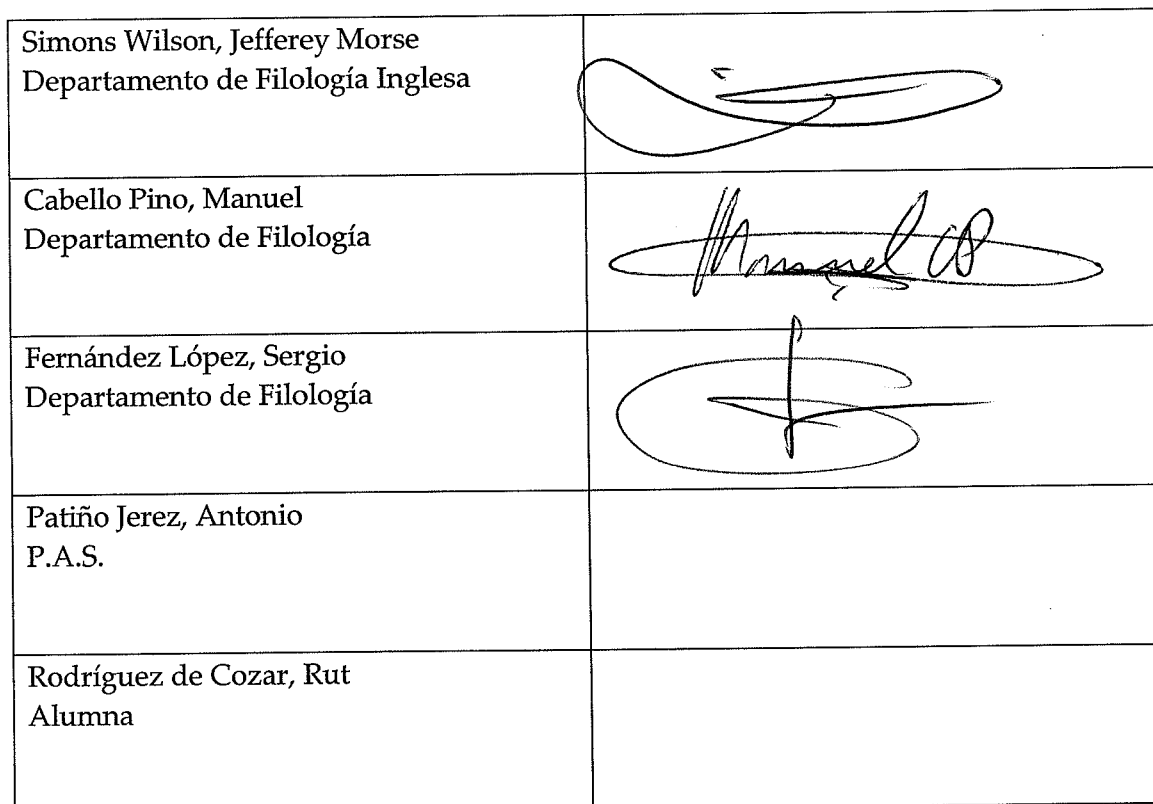 Simons Wilson, Jefferey Morse
Departamento de Filología Inglesa
Cabello Pino, Manuel
Departamento de Filología
Manuel CP
Fernández López, Sergio
Departamento de Filología
Patiño Jerez, Antonio
P.A.S.
Rodríguez de Cozar, Rut
Alumna